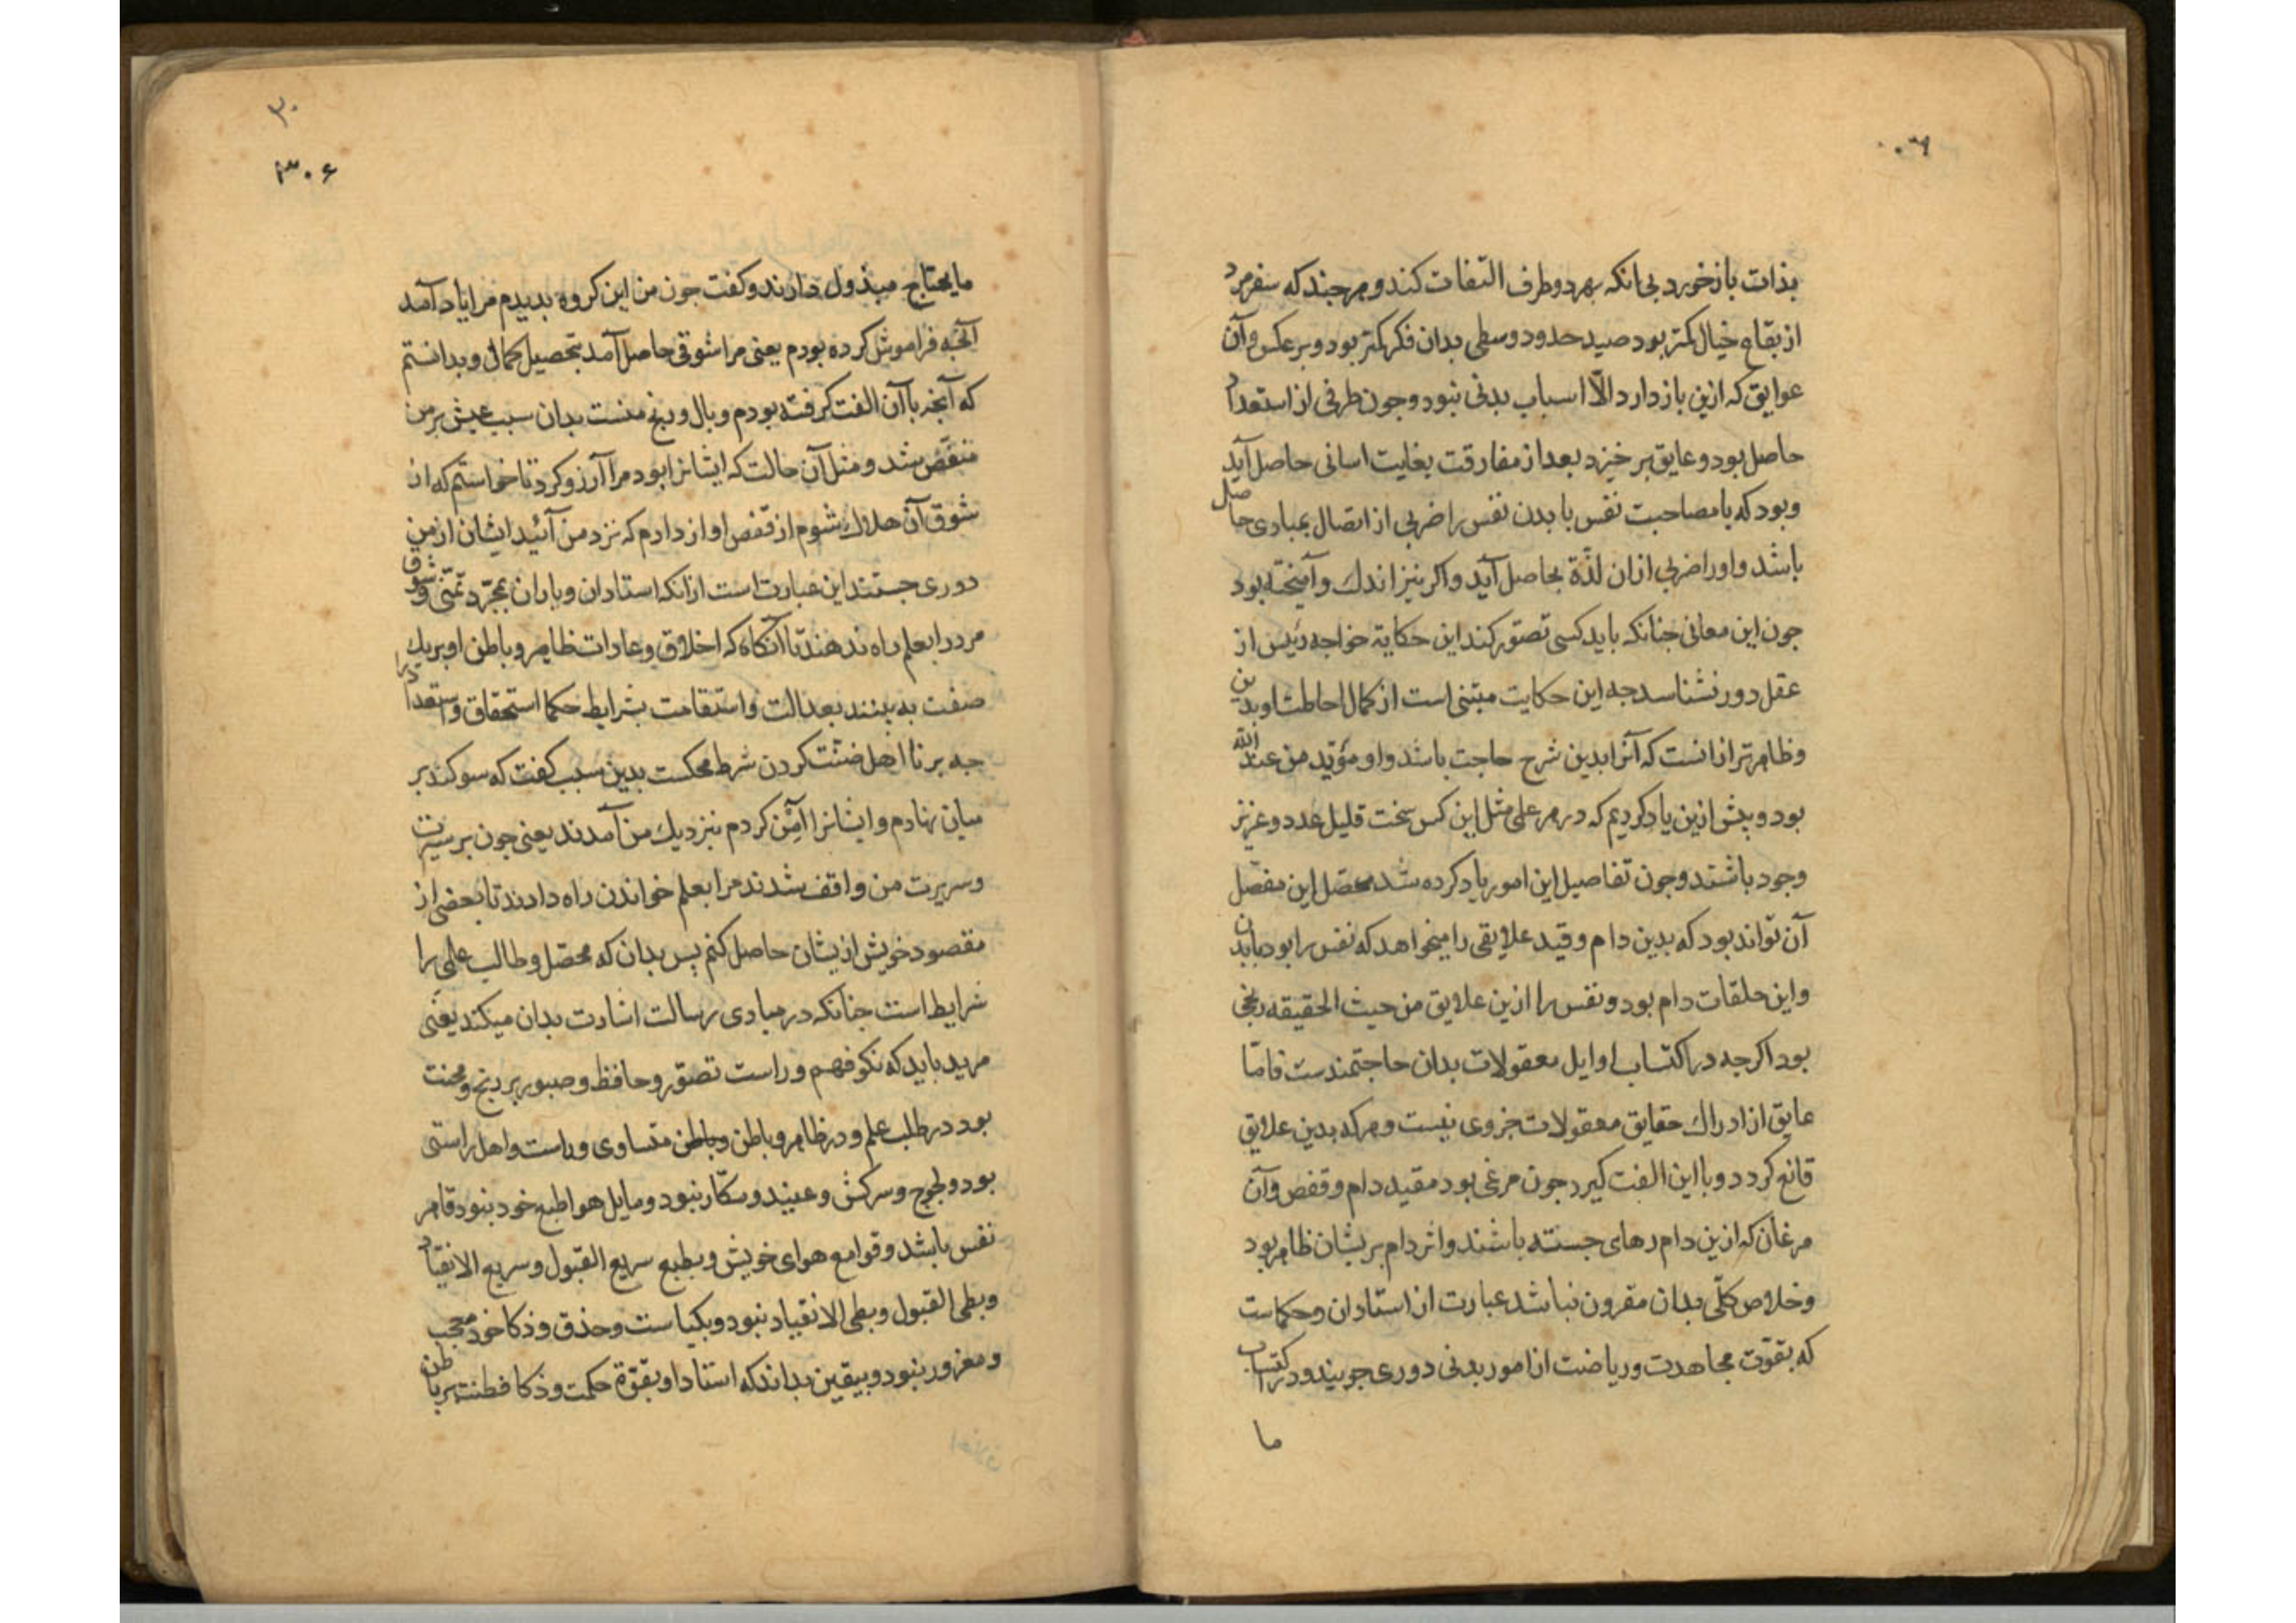 بذات باز خورد بی آنکه بهر دو طرف التفات کند و هرچند که سفر مرد
از بقاع خیال کمتر بود صید حدود وسطی بدان فکر کمتر بود و بر عکس و آن
عوایق که ازین باز دارد الّا اسباب بدنی نبود و جون طرفی از استعداد
حاصل بود و عایق بر خیزد بعد از مفارقت بغایت اسانی حاصل آید
و بود که با مصاحبت نفس با بدن نفس را ضربی از اتصال بمبادی حاصل
باشد و او را ضربی ازان لذّة بحاصل آید و اکر نیز اندك و آمیخته بود
جون این معانی جنانکه باید کسی تصوّر کند این حکایة خواجه رئیس از
عقل دور نشناسد جه این حکایت مبتنی است از کمال احاطت او بدین
و ظاهرتر ازانست که آنرا بدین شرح حاجت باشد و او مؤیّد من عند الله
بود و بیش ازین یاد کردیم که در هر علمی مثل این کس سخت قلیل عدد و عزیز
وجود باشند و جون تفاصیل این امور یاد کرده شد محصّل این مفصّل
آن تواند بود که بدین دام و قید علایقی را میخواهد که نفس را بود با بدن
و این حلقات دام بود و نفس را ازین علایق من حیث الحقیقه رنجی
بود اکرجه در اکتساب اوایل معقولات بدان حاجتمندست فامّا
عایق از ادراك حقایق معقولات جزوی نیست و هرکه بدین علایق
قانع کردد و با این الفت کیرد جون مرغی بود مقید دام و قفص و آن
مرغان که ازین دام رهای جسته باشند و اثر دام بریشان ظاهر بود
و خلاص کلّی بدان مقرون نباشد عبارت از استادان و حکماست
که بقوّت مجاهدت و ریاضت از امور بدنی دوری جویند و در اکتساب
ما
۳۰
۳۰۶
ما یحتاج مبذول دارند و کفت جون من این کروه بدیدم مرا یاد آمد
آنجه فراموش کرده بودم یعنی مرا شوقی حاصل آمد بتحصیل کمالی و بدانستم
که آنجه با آن الفت کرفته بودم وبال و رنج منست بدان سبب عیش بر من
منغّص شد و مثل آن حالت که ایشانرا بود مرا آرزو کرد تا خواستم که از
شوق آن هلاك شوم از قفص اواز دادم که نزد من آئید ایشان از من
دوری جستند این عبارت است ازانکه استادان و یاران بمجرّد تمنّی و شوق
مرد را بعلم راه ندهند تا آنکاه که اخلاق و عادات ظاهر و باطن او بر یك
صفت به بینند بعدالت و استقامت بشرایط حکما استحقاق و استعداد را
جه بر نا اهل ضنّت کردن شرط محکست بدین سبب کفت که سوکند بر
میان نهادم و ایشانرا آمِن کردم نزدیك من آمدند یعنی جون بر سیرت
و سریرت من واقف شدند مرا بعلم خواندن راه دادند تا بعضی از
مقصود خویش ازیشان حاصل کنم پس بدان که محصّل و طالب علم را
شرایط است جنانکه در مبادی رسالت اشارت بدان میکند یعنی
مرید باید که نکو فهم و راست تصوّر و حافظ و صبور بر رنج و محنت
بود در طلب علم و در ظاهر و باطن و باطن متساوی و راست و اهل راستی
بود و لجوج و سرکش و عنید و مکّار نبود و مایل هوا طبع خود نبود قاهر
نفس باشد و قوامع هوای خویش و بطبع سریع القبول و سریع الانقیاد
و بطی القبول و بطی الانقیاد نبود و بکیاست و حذق و ذکا خود معجب
و مغرور نبود و بیقین بداند که استاد او بقوّة حکمت و ذکا فطنت بر باطن